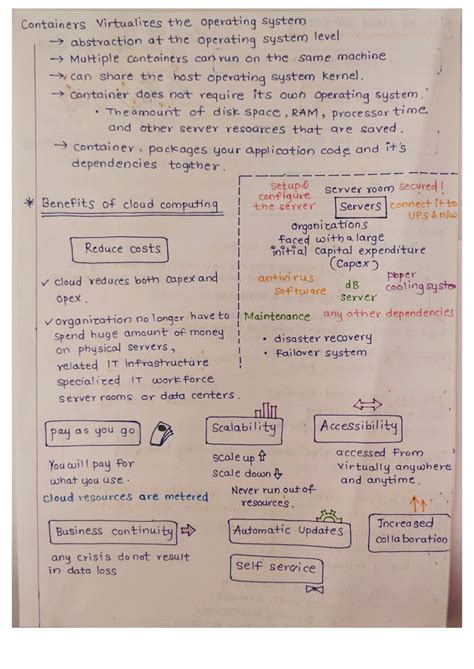 Containers Virtualizes the operating system
→ abstraction at the operating system level
→ Multiple containers can run on the same machine
→ can share the host operating system kernel.
→ container does not require its own operating system.
• The amount of disk space, RAM, processor time
and other server resources that are saved.
→ container, packages your application code and it's
dependencies together.
* Benefits of cloud computing
Reduce costs
✓ cloud reduces both capex and
opex.
✓ organization no longer have to
spend huge amount of money
on physical servers,
related IT infrastructure
specialized IT workforce
server rooms or data centers.
setup &
configure
the server
server room secured!
Servers
connect it to
UPS & n/w
organizations
faced with a large
initial capital expenditure
(Capex)
antivirus
software
dB
server
proper
cooling system
Maintenance any other dependencies
• disaster recovery
• failover system
pay as you go
You will pay for
what you use.
cloud resources are metered
Scalability
scale up ⇑
scale down ⇓
Never run out of
resources.
Accessibility
accessed from
virtually anywhere
and anytime.
Business continuity
any crisis do not result
in data loss
Automatic Updates
Increased
collaboration
self service